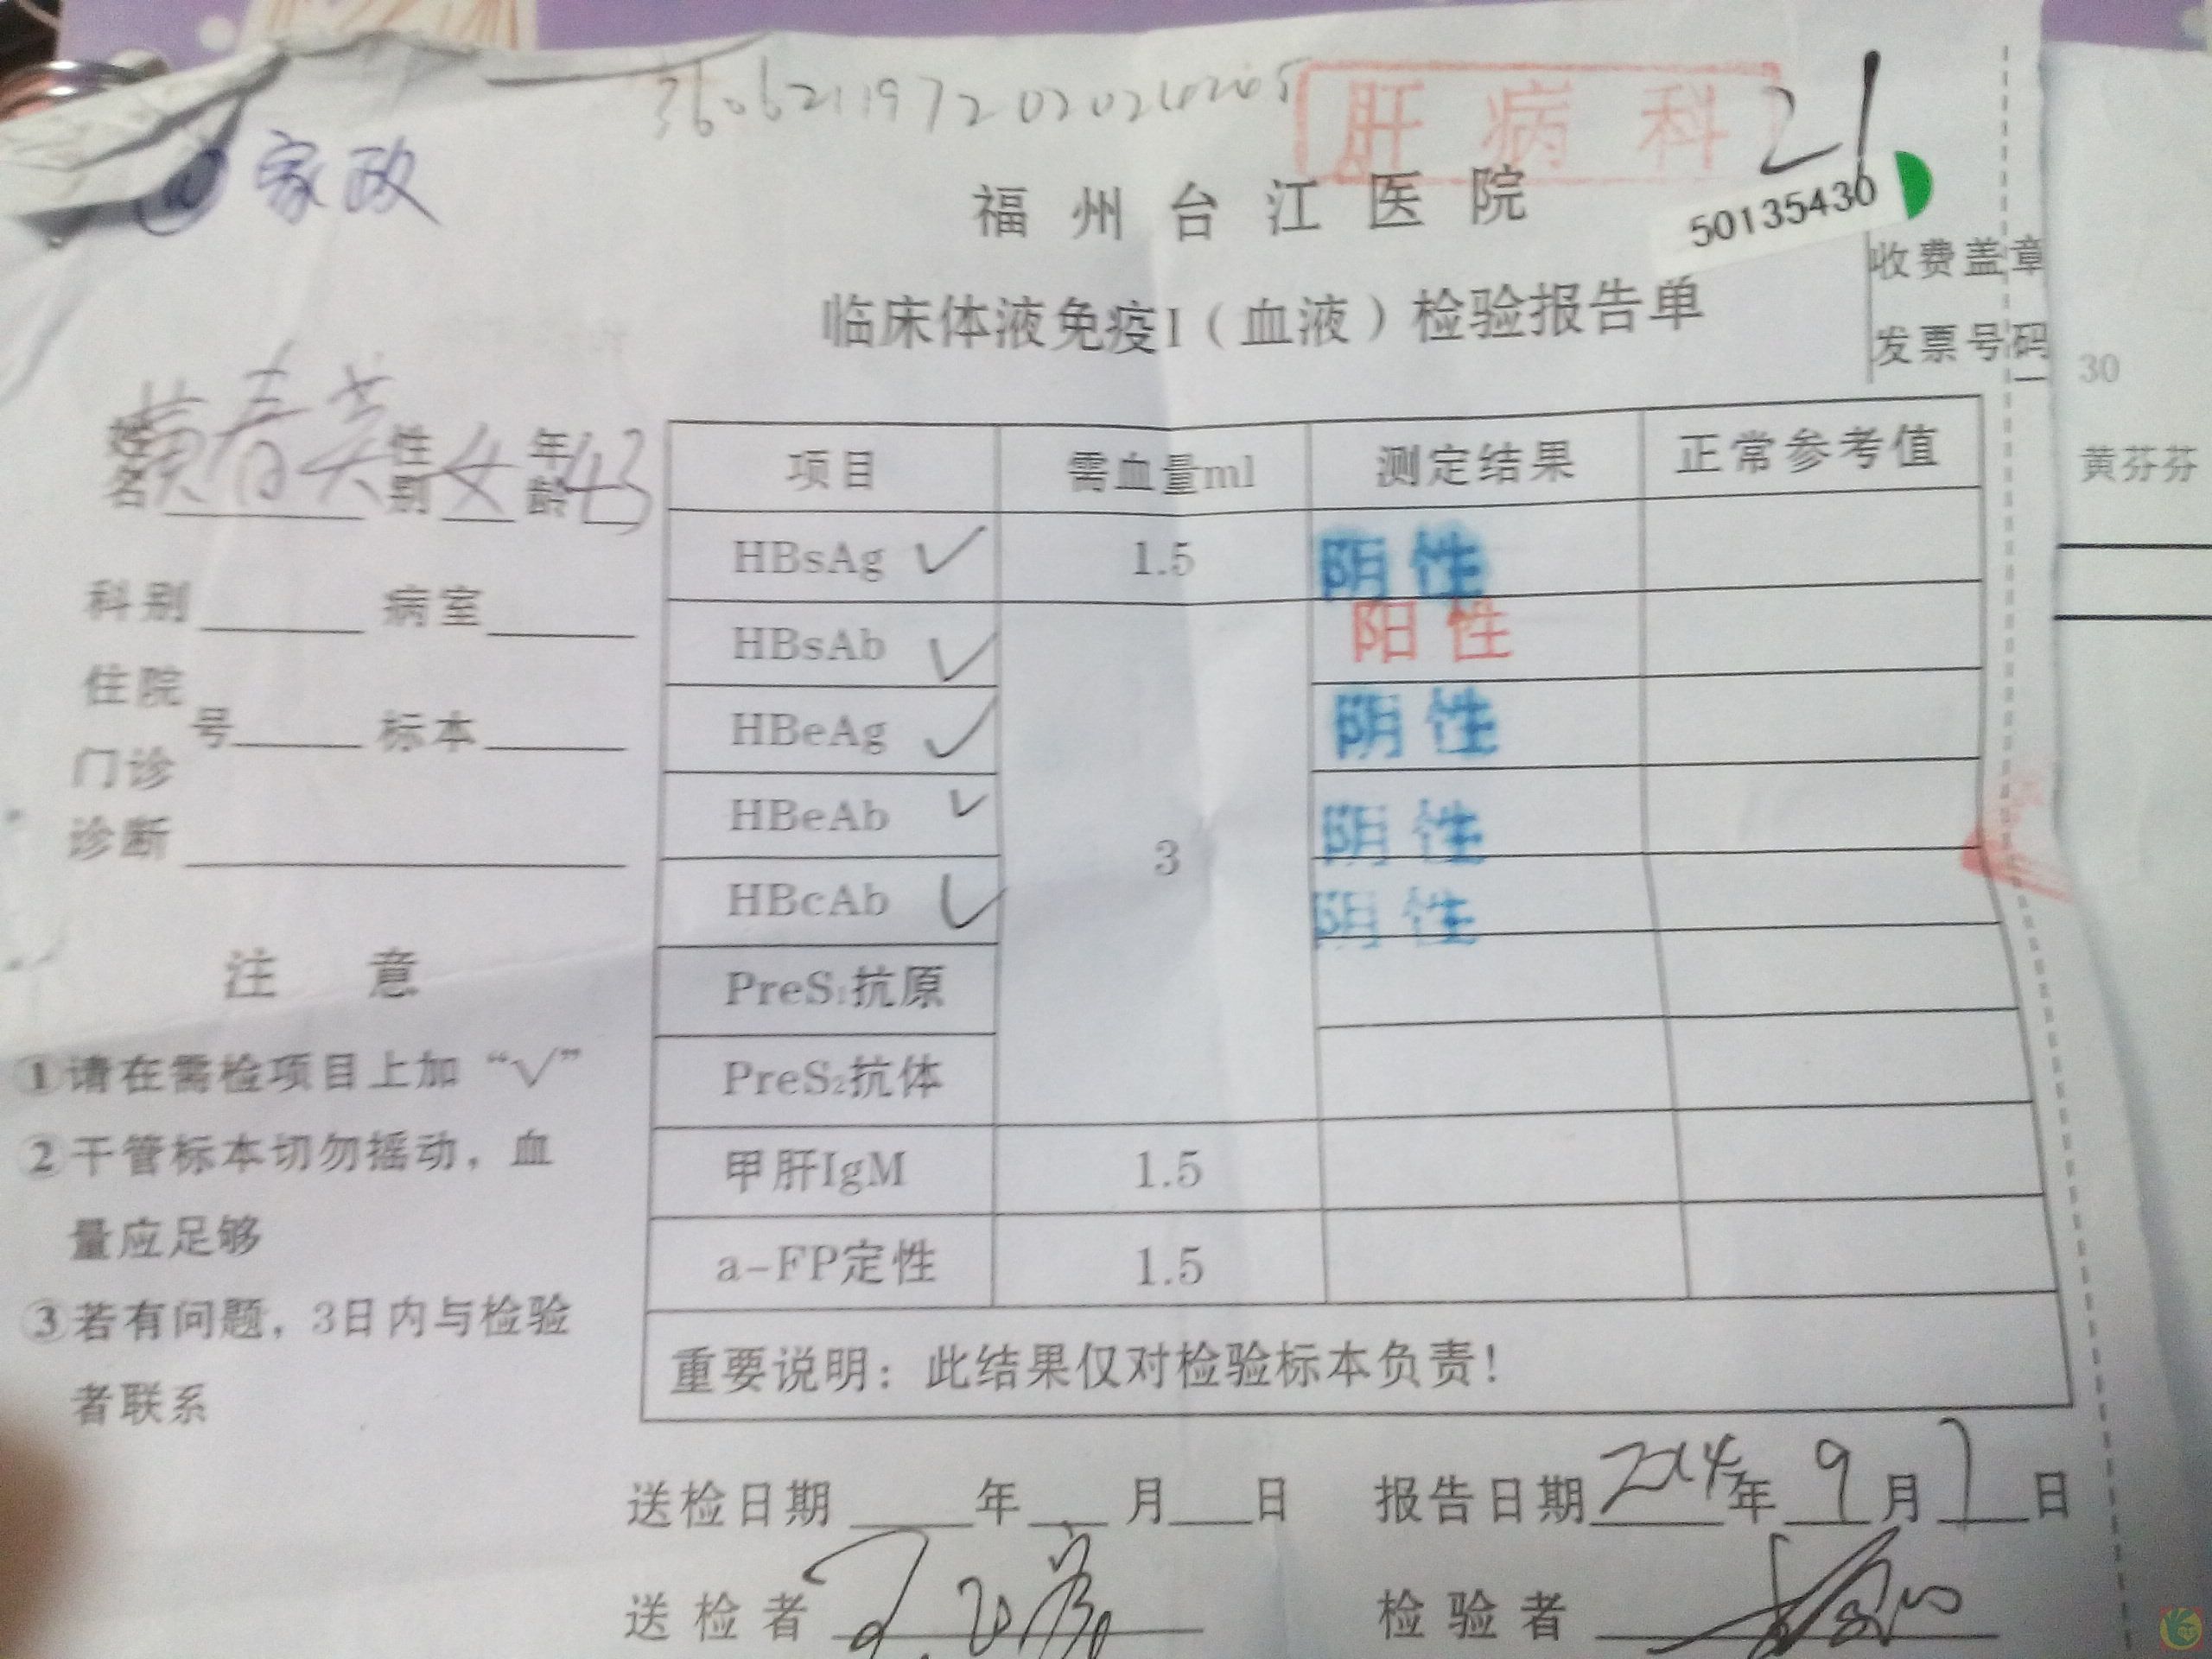 肝病科
21
家政
福州台江医院
50135430
收费盖章
临床体液免疫I(血液)检验报告单
发票号码
30
姓名 黄春英 性别 女 年龄 43
黄芬芬
项目 需血量ml 测定结果 正常参考值
HBsAg ✓ 1.5 阴性
HBsAb ✓ 阳性
HBeAg ✓ 阴性
HBeAb ✓ 3 阴性
HBcAb ✓ 阴性
PreS1抗原
PreS2抗体
甲肝IgM 1.5
a-FP定性 1.5
重要说明:此结果仅对检验标本负责!
科别 病室
住院
号 标本
门诊
诊断
注意
①请在需检项目上加“√”
②干管标本切勿摇动,血
量应足够
③若有问题,3日内与检验
者联系
送检日期 年 月 日 报告日期 2014年 9月 7日
送检者 检验者